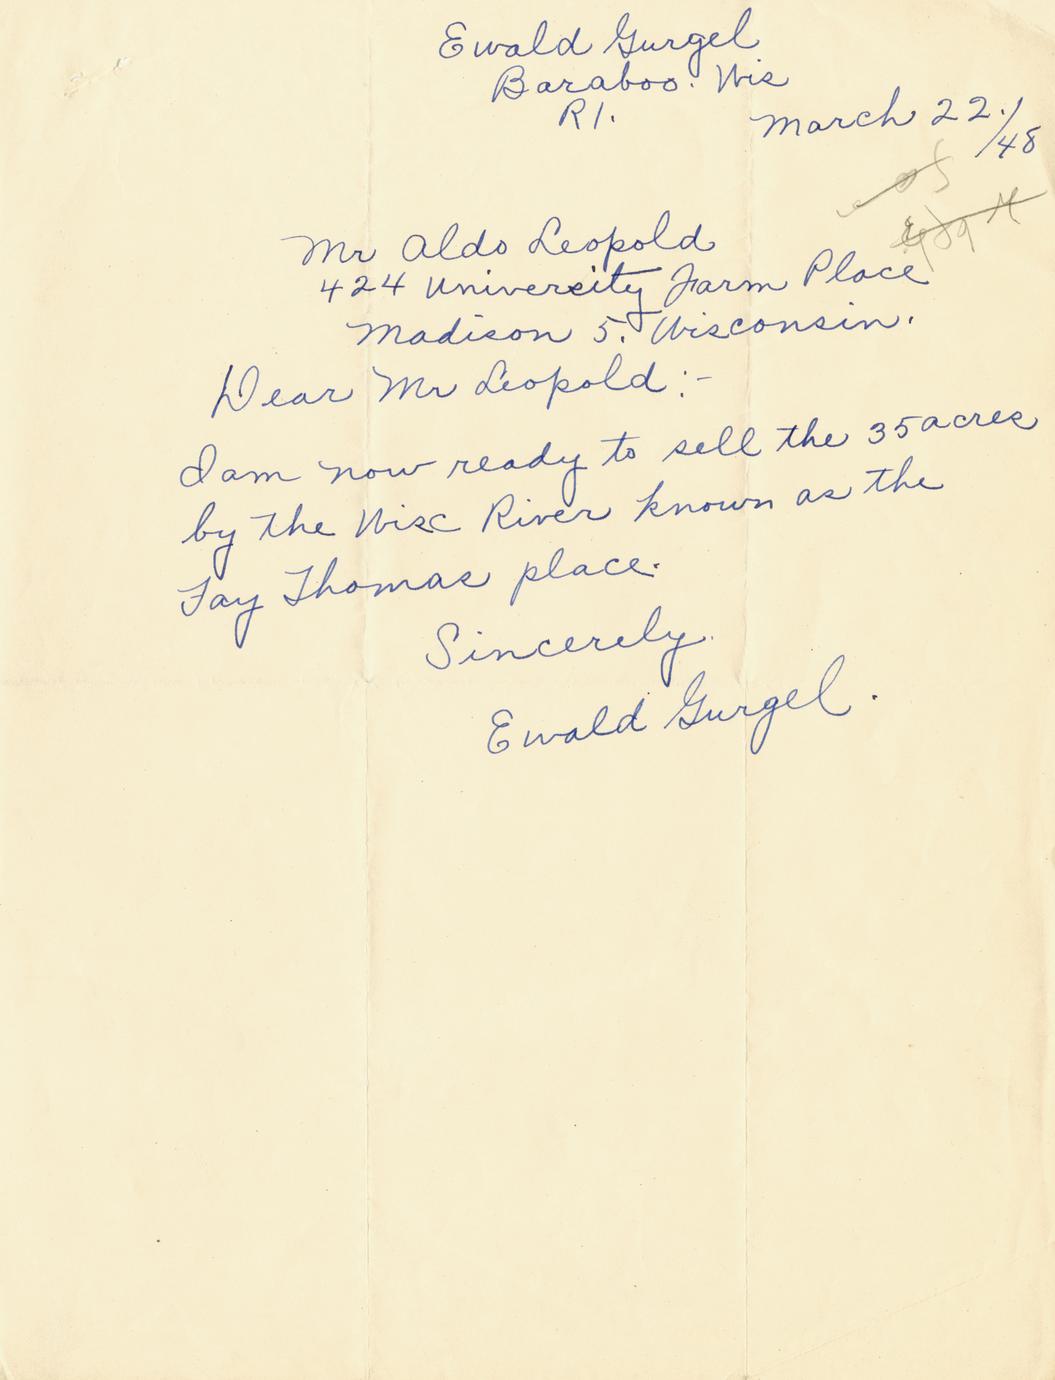 Ewald Gurgel
Baraboo. Wis
R1.
March 22./48
Mr Aldo Leopold
424 University Farm Place
Madison 5. Wisconsin.
Dear Mr Leopold:-
I am now ready to sell the 35 acres
by the Wisc River known as the
Fay Thomas place.
Sincerely.
Ewald Gurgel.